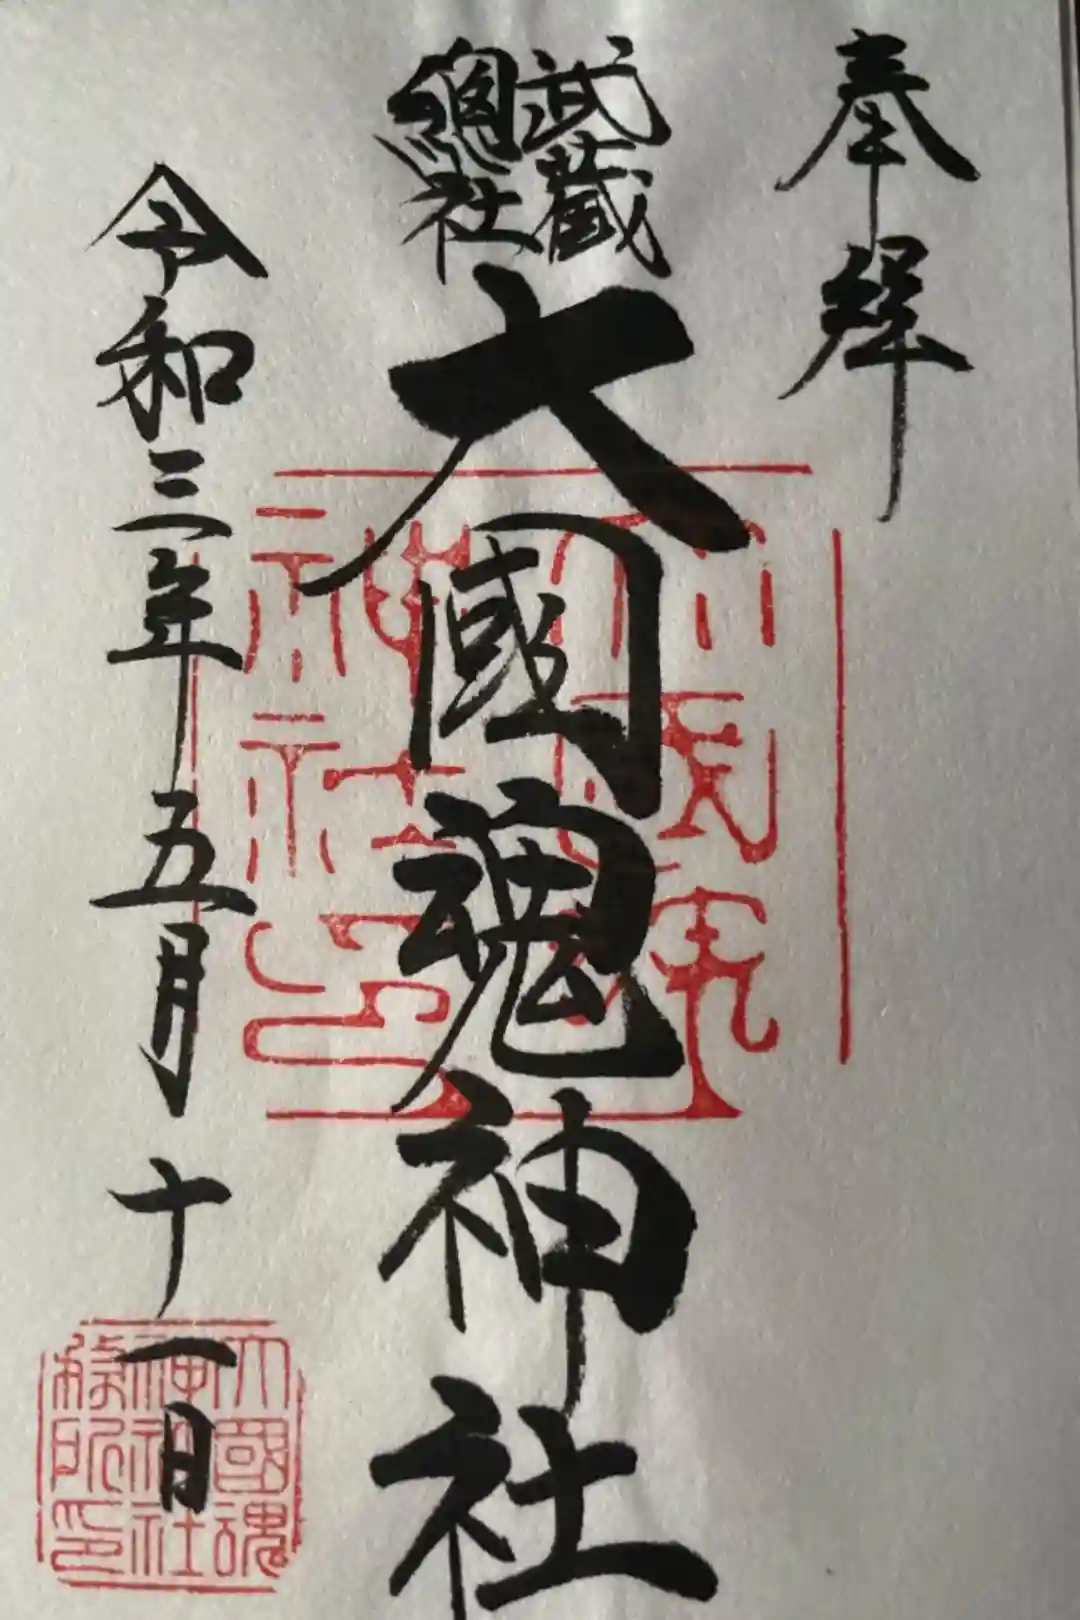 奉拝
武蔵
總社
大國魂神社
令和三年五月十一日
大國魂
神社
大國魂
神社社
務所印